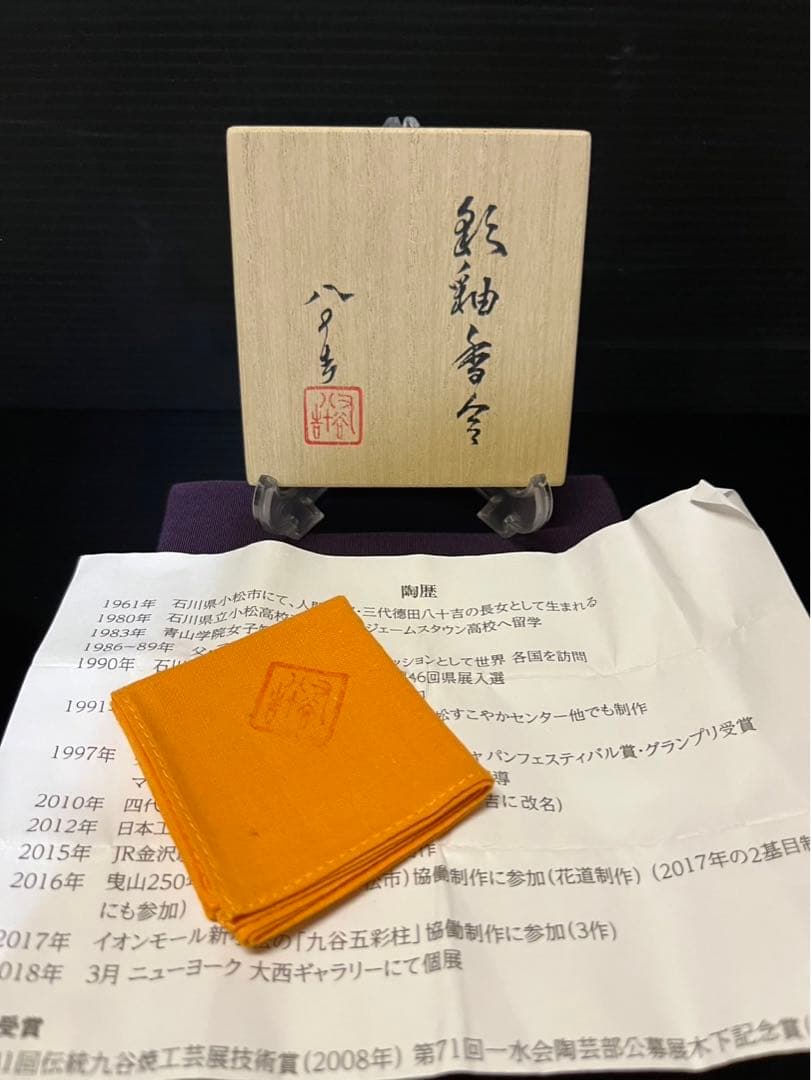 彩釉香合
八十吉
陶歴
1961年 石川県小松市にて、人間 ・三代徳田八十吉の長女として生まれる
1980年 石川県立小松高校 ジェームスタウン高校へ留学
1983年 青山学院女子
1986~89年 父・ ッションとして世界 各国を訪問
1990年 石 46回県展入選
1991年 松すこやかセンター他でも制作
1997年 ャパンフェスティバル賞・グランプリ受賞
マ 導
2010年 四代 吉に改名)
2012年 日本工
2015年 JR金沢 作
2016年 曳山250年 松市)協働制作に参加(花道制作)(2017年の2基目制
にも参加)
2017年 イオンモール新小松の「九谷五彩柱」協働制作に参加(3作)
018年 3月 ニューヨーク 大西ギャラリーにて個展
受賞
1回伝統九谷焼工芸展技術賞(2008年) 第71回一水会陶芸部公募展木下記念賞(